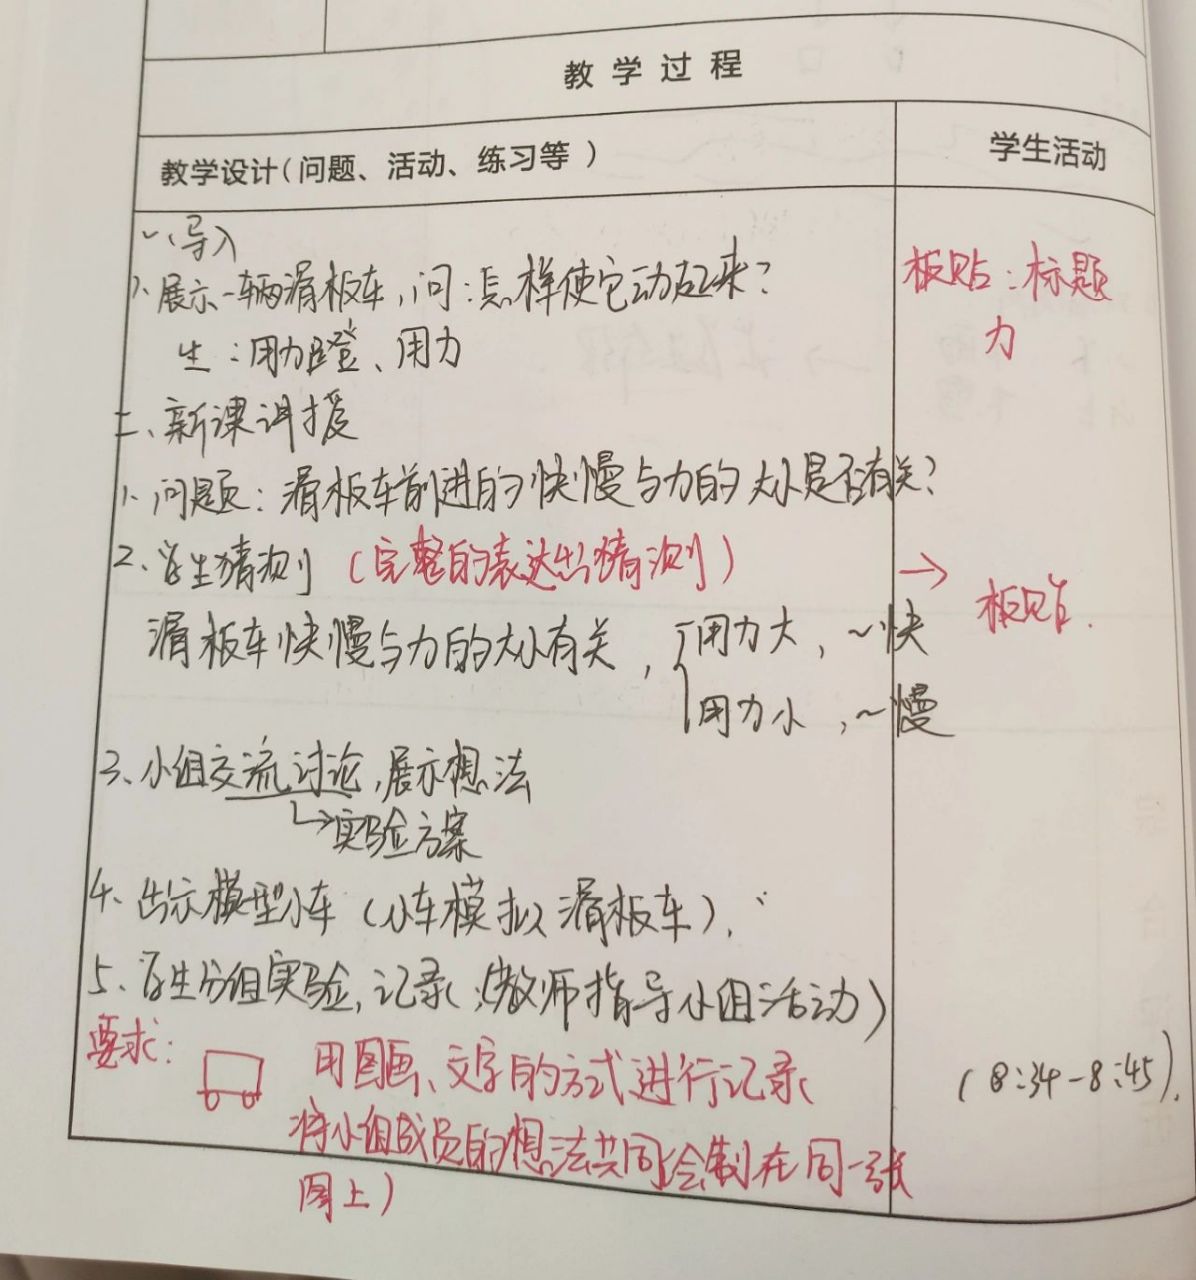 教学过程
教学设计(问题、活动、练习等)
学生活动
一、导入
1、展示一辆滑板车,问:怎样使它动起来?
生:用力蹬、用力
板贴:标题
力
二、新课讲授
1、问题:滑板车前进的快慢与力的大小是否有关?
2、学生猜测(完整的表达出猜测)
→ 板贴.
滑板车快慢与力的大小有关,
用力大,~快
用力小,~慢
3、小组交流讨论,展示想法
↳实验方案
4、出示模型小车(小车模拟滑板车).
5、学生分组实验,记录;(教师指导小组活动)
要求:
用图画、文字的方式进行记录
(8:34-8:45).
将小组成员的想法共同绘制在同一张
图上)